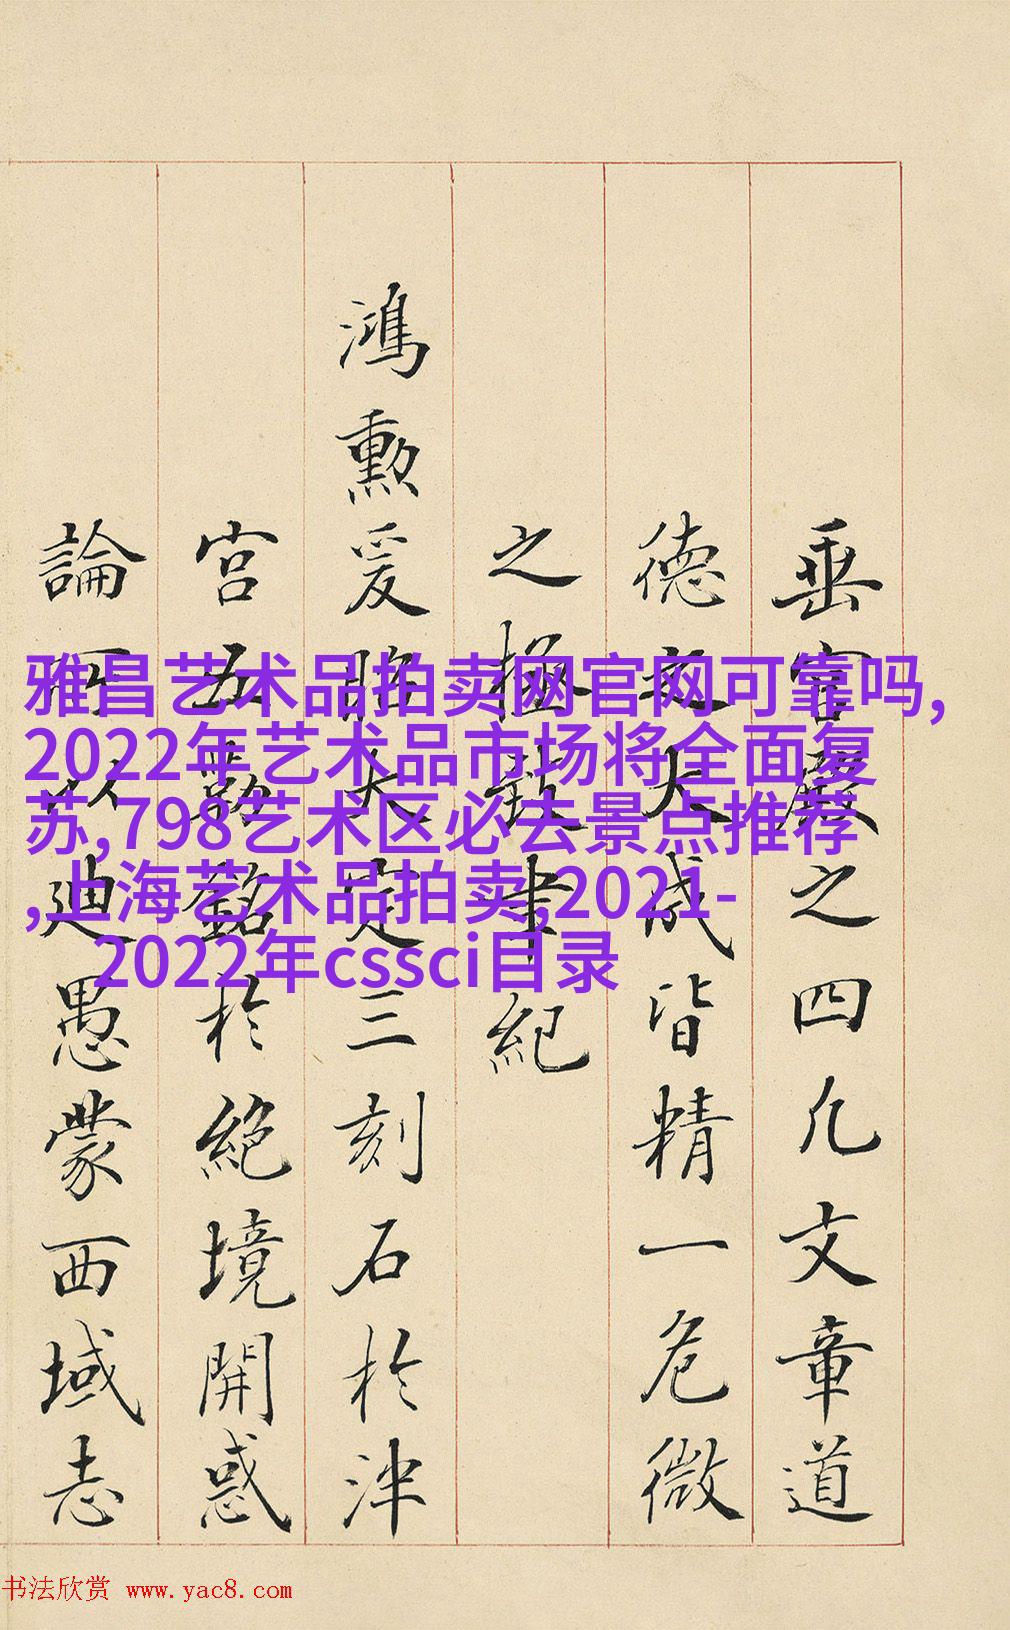 垂之四凢文章道
德之大咸皆精一危微
之極致聿紀
鴻勲爰昭大定三刻石於泮
宫五勒銘於絶境開惑
論所以廸愚蒙西域志
雅昌艺术品拍卖网官网可靠吗,
2022年艺术品市场将全面复
苏,798艺术区必去景点推荐
,上海艺术品拍卖,2021-
2022年cssci目录
书法欣赏 www.yac8.com